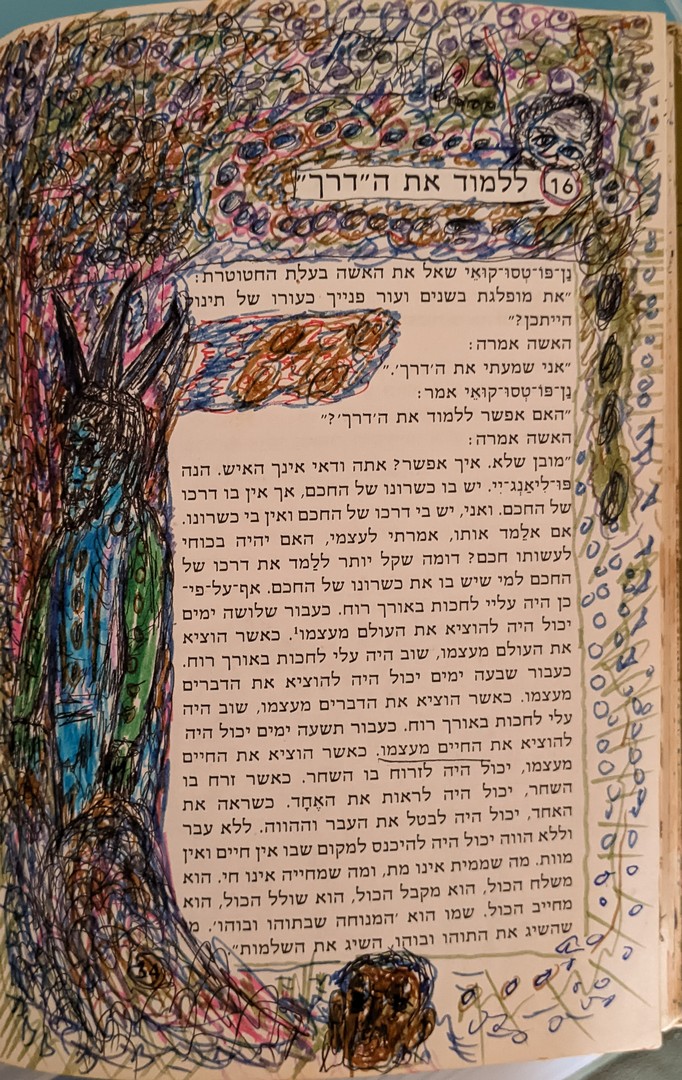 16 ללמוד את ה״דרך״
נַן־פּוֹ־טְסוּ־קוּאֵי שאל את האשה בעלת החטוטרת:
״את מופלגת בשנים ועור פנייך כעורו של תינוק
הייתכן?״
האשה אמרה:
״אני שמעתי את ה׳דרך׳.״
נַן־פּוֹ־טְסוּ־קוּאֵי אמר:
״האם אפשר ללמוד את ה׳דרך׳?״
האשה אמרה:
״מובן שלא. איך אפשר? אתה ודאי אינך האיש. הנה
פּוּ־לִיאַנְג־יִי. יש בו כשרונו של החכם, אך אין בו דרכו
של החכם. ואני, יש בי דרכו של החכם ואין בי כשרונו.
אם אלַמד אותו, אמרתי לעצמי, האם יהיה בכוחי
לעשותו חכם? דומה שקל יותר ללַמד את דרכו של
החכם למי שיש בו את כשרונו של החכם. אף־על־פי־
כן היה עליי לחכות באורך רוח. כעבור שלושה ימים
יכול היה להוציא את העולם מעצמו¹. כאשר הוציא
את העולם מעצמו, שוב היה עלי לחכות באורך רוח.
כעבור שבעה ימים יכול היה להוציא את הדברים
מעצמו. כאשר הוציא את הדברים מעצמו, שוב היה
עלי לחכות באורך רוח. כעבור תשעה ימים יכול היה
להוציא את החיים מעצמו. כאשר הוציא את החיים
מעצמו, יכול היה לזרוח בו השחר. כאשר זרח בו
השחר, יכול היה לראות את האֶחָד. כשראה את
האחד, יכול היה לבטל את העבר וההווה. ללא עבר
וללא הווה יכול היה להיכנס למקום שבו אין חיים ואין
מוות. מה שממית אינו מת, ומה שמחייה אינו חי. הוא
משלח הכול, הוא מקבל הכול, הוא שולל הכול, הוא
מחייב הכול. שמו הוא ׳המנוחה שבתוהו ובוהו׳. מי
שהשיג את התוהו ובוהו, השיג את השלמות״.